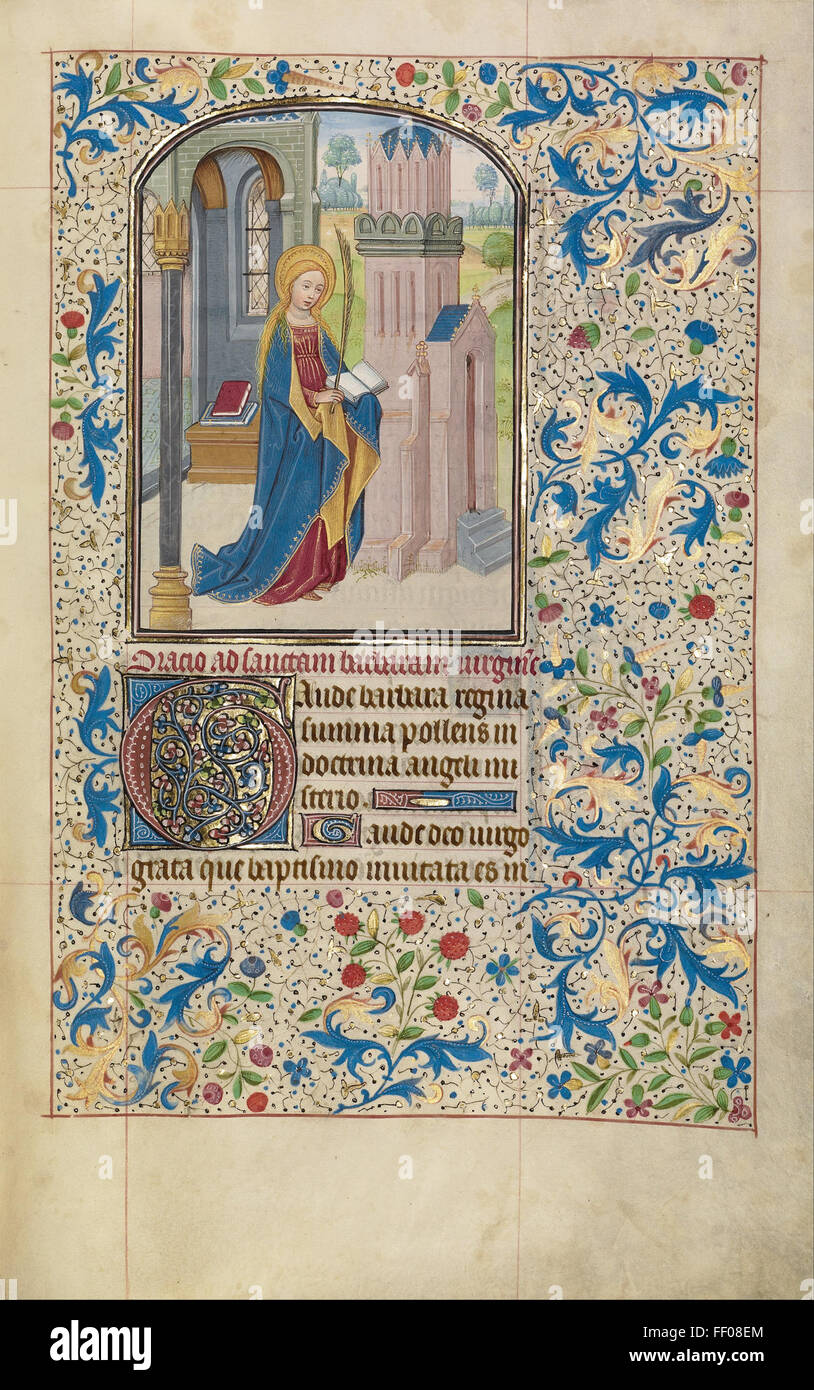 Oracio ad sanctam barbaram virginē
Gaude barbara regina
summa pollens in
doctrina angeli mi
sterio.
Gaude deo virgo
grata que baptismo imitata es in
alamy
a
a
alamy stock photo
FF08EM
www.alamy.com